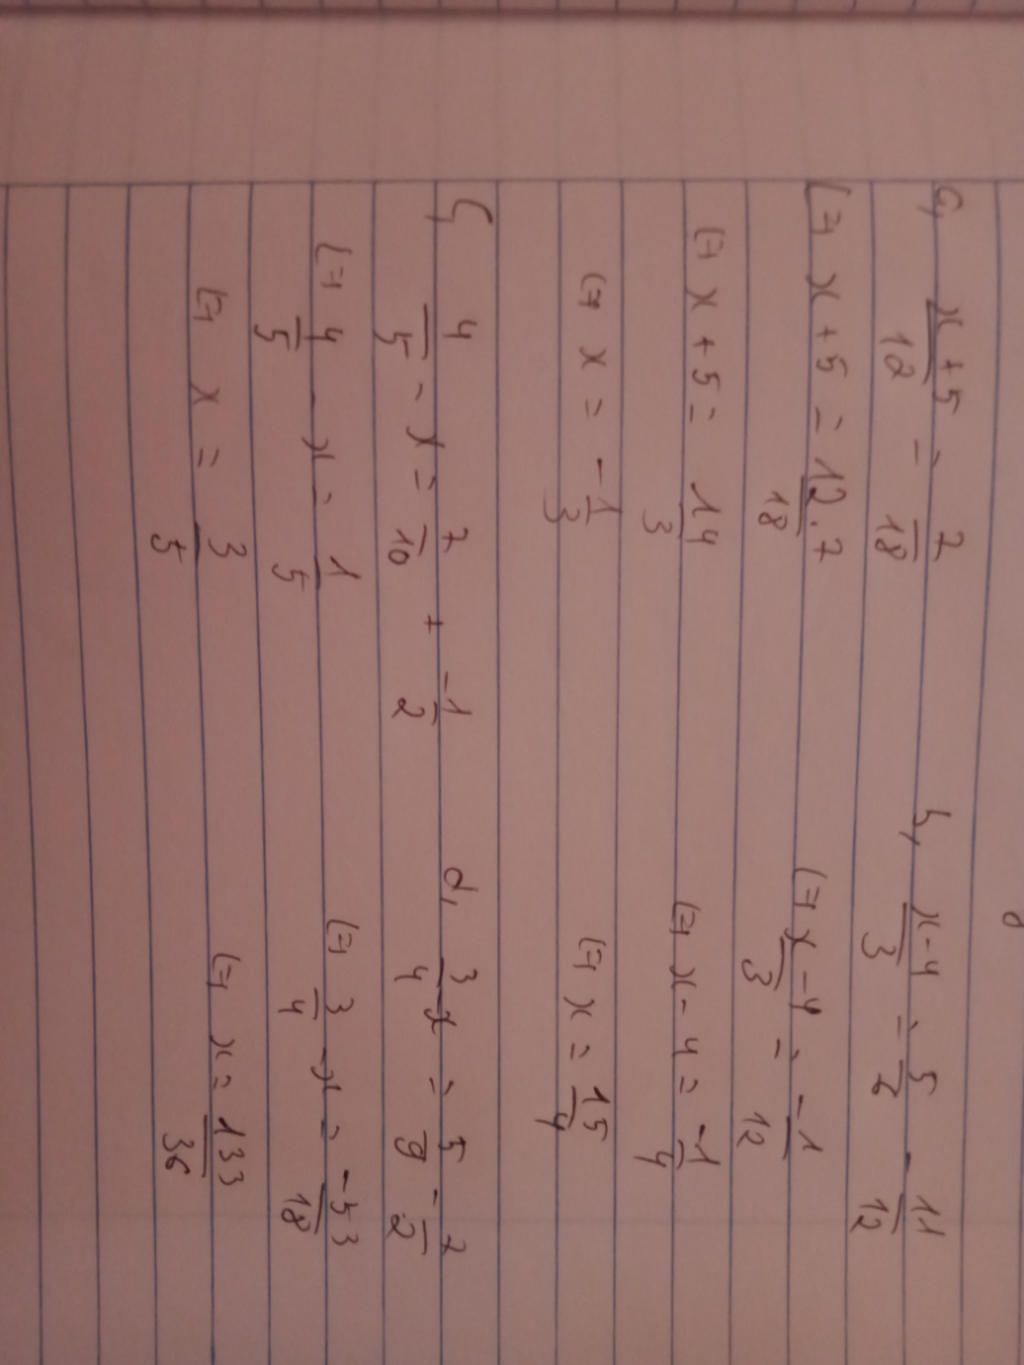 a, (x+5)/12 = 7/18
(=) x+5 = 12.7/18
(=) x+5 = 14/3
(=) x = -1/3
b, (x-4)/3 = 5/6 - 11/12
(=) (x-4)/3 = -1/12
(=) x-4 = -1/4
(=) x = 15/4
c, 4/5 - x = 7/10 + -1/2
(=) 4/5 - x = 1/5
(=) x = 3/5
d, 3/4 - x = 5/9 - 7/2
(=) 3/4 - x = -53/18
(=) x = 133/36